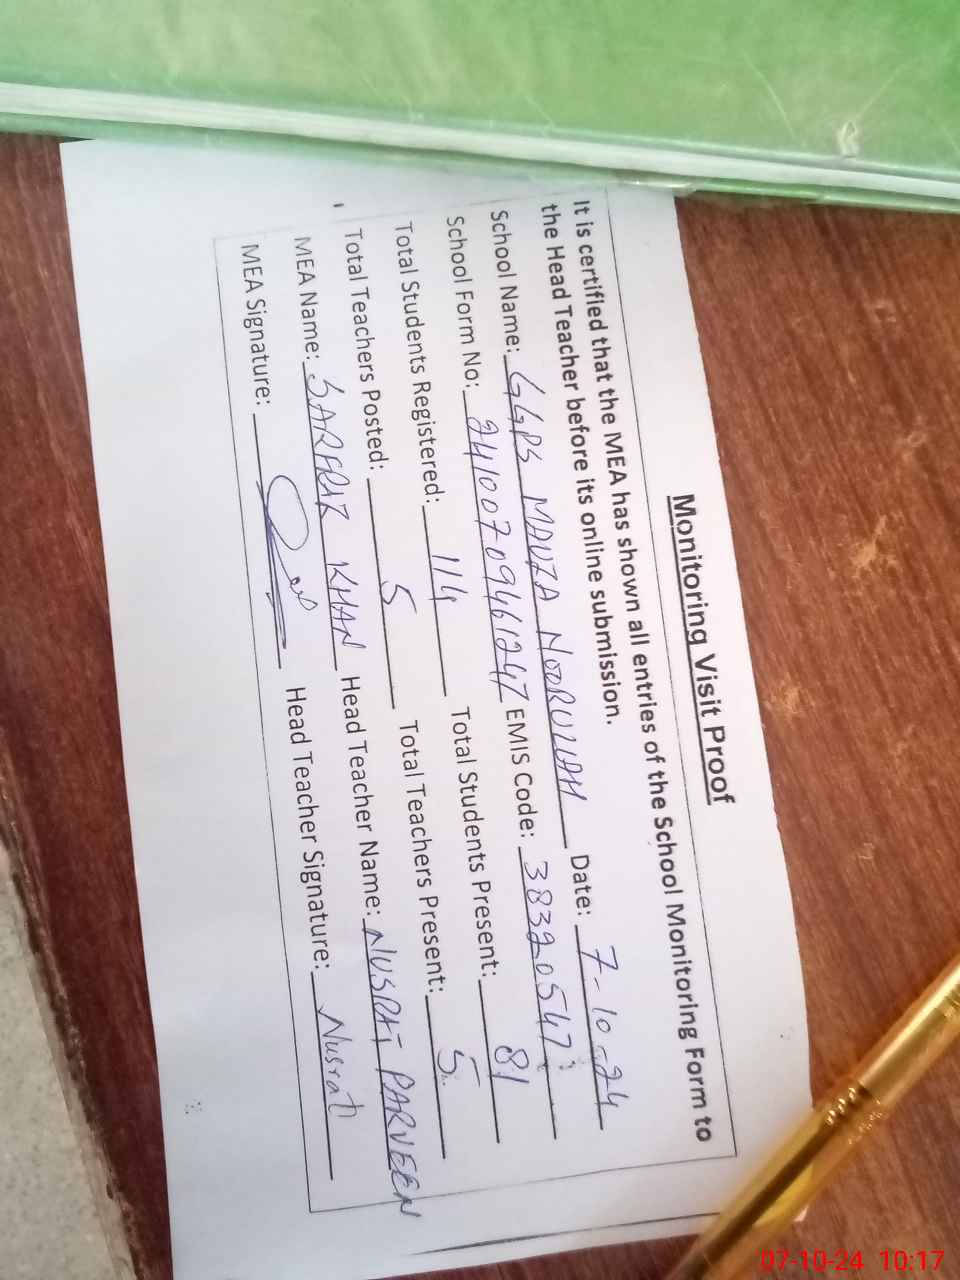 Monitoring Visit Proof
It is certified that the MEA has shown all entries of the School Monitoring Form to
the Head Teacher before its online submission.
School Name: GGPS MAUZA NOORULLAH Date: 7-10-24
School Form No: 24100709461247 EMIS Code: 38320547
Total Students Registered: 114 Total Students Present: 81
Total Teachers Posted: 5 Total Teachers Present: 5
MEA Name: SARFRIZ KHAN Head Teacher Name: NUSRAT PARVEEN
MEA Signature: Head Teacher Signature: Nusrat
07-10-24 10:17